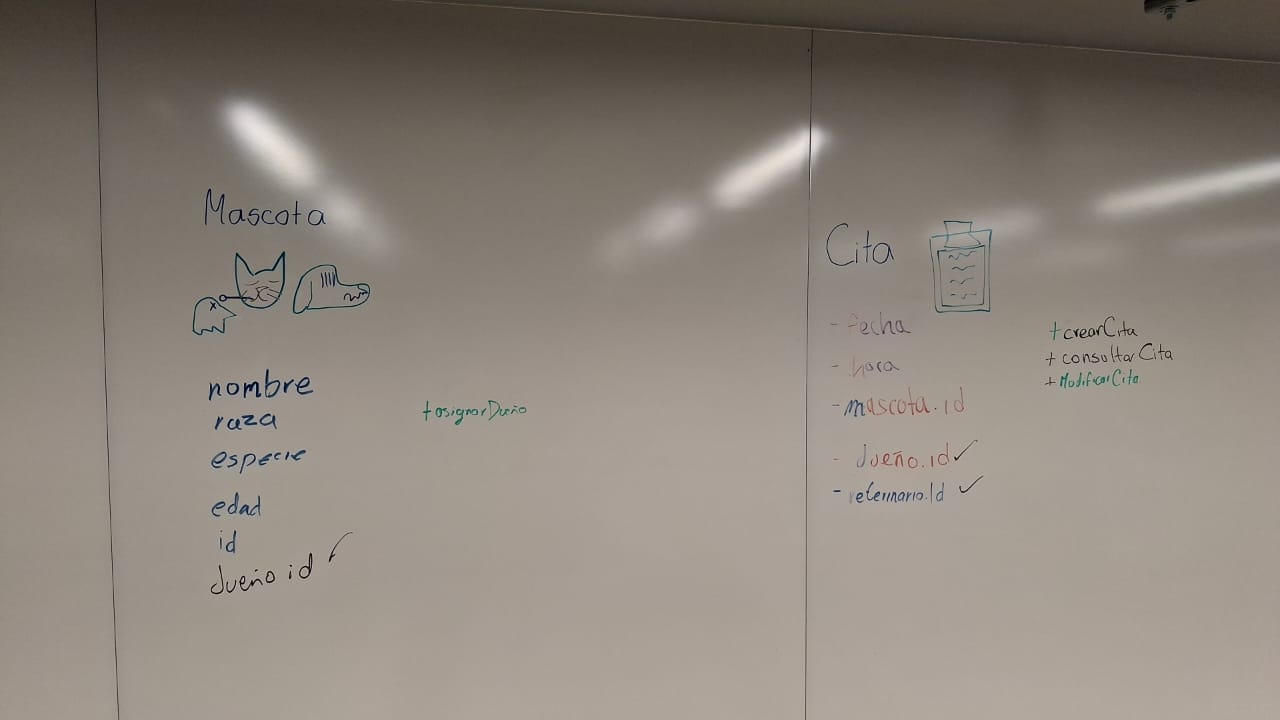 Mascota
nombre
raza
especie
edad
id
dueño id
+asignarDueño
Cita
- fecha
- hora
- mascota.id
- dueño.id ✓
- veterinario.Id ✓
+crearCita
+consultarCita
+ModificarCita